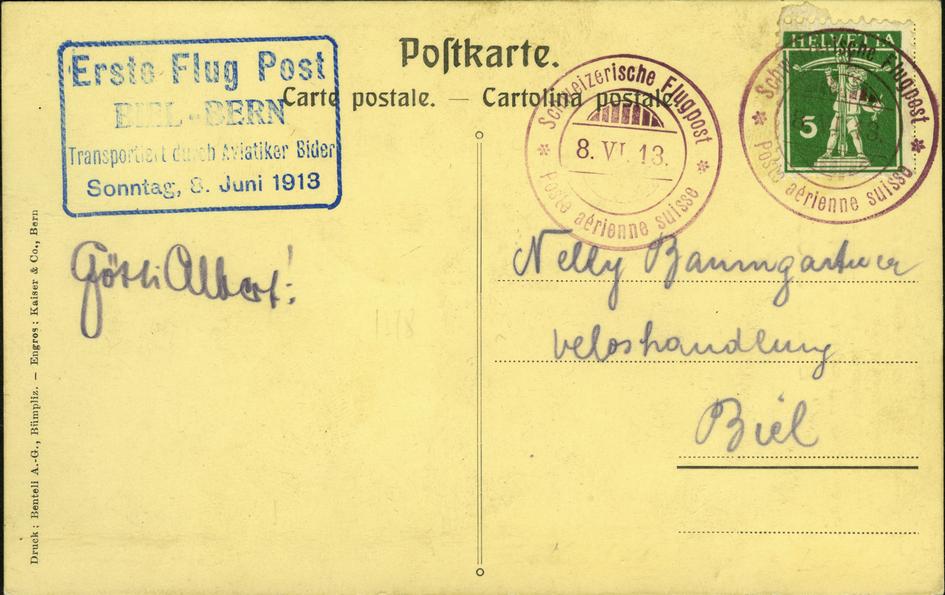 Postkarte.
Carte postale. — Cartolina postale.
Erste Flug Post
BIEL - BERN
Transportiert durch Aviatiker Bider
Sonntag, 8. Juni 1913
Schweizerische Flugpost
8. VI. 13.
* Poste aérienne suisse *
HELVETIA
5
Schweizerische Flugpost
* Poste aérienne suisse *
Götti Albert!
Nelly Baumgartner
Veloshandlung
Biel
Druck: Benteli A.-G., Bümpliz. — Engros: Kaiser & Co., Bern